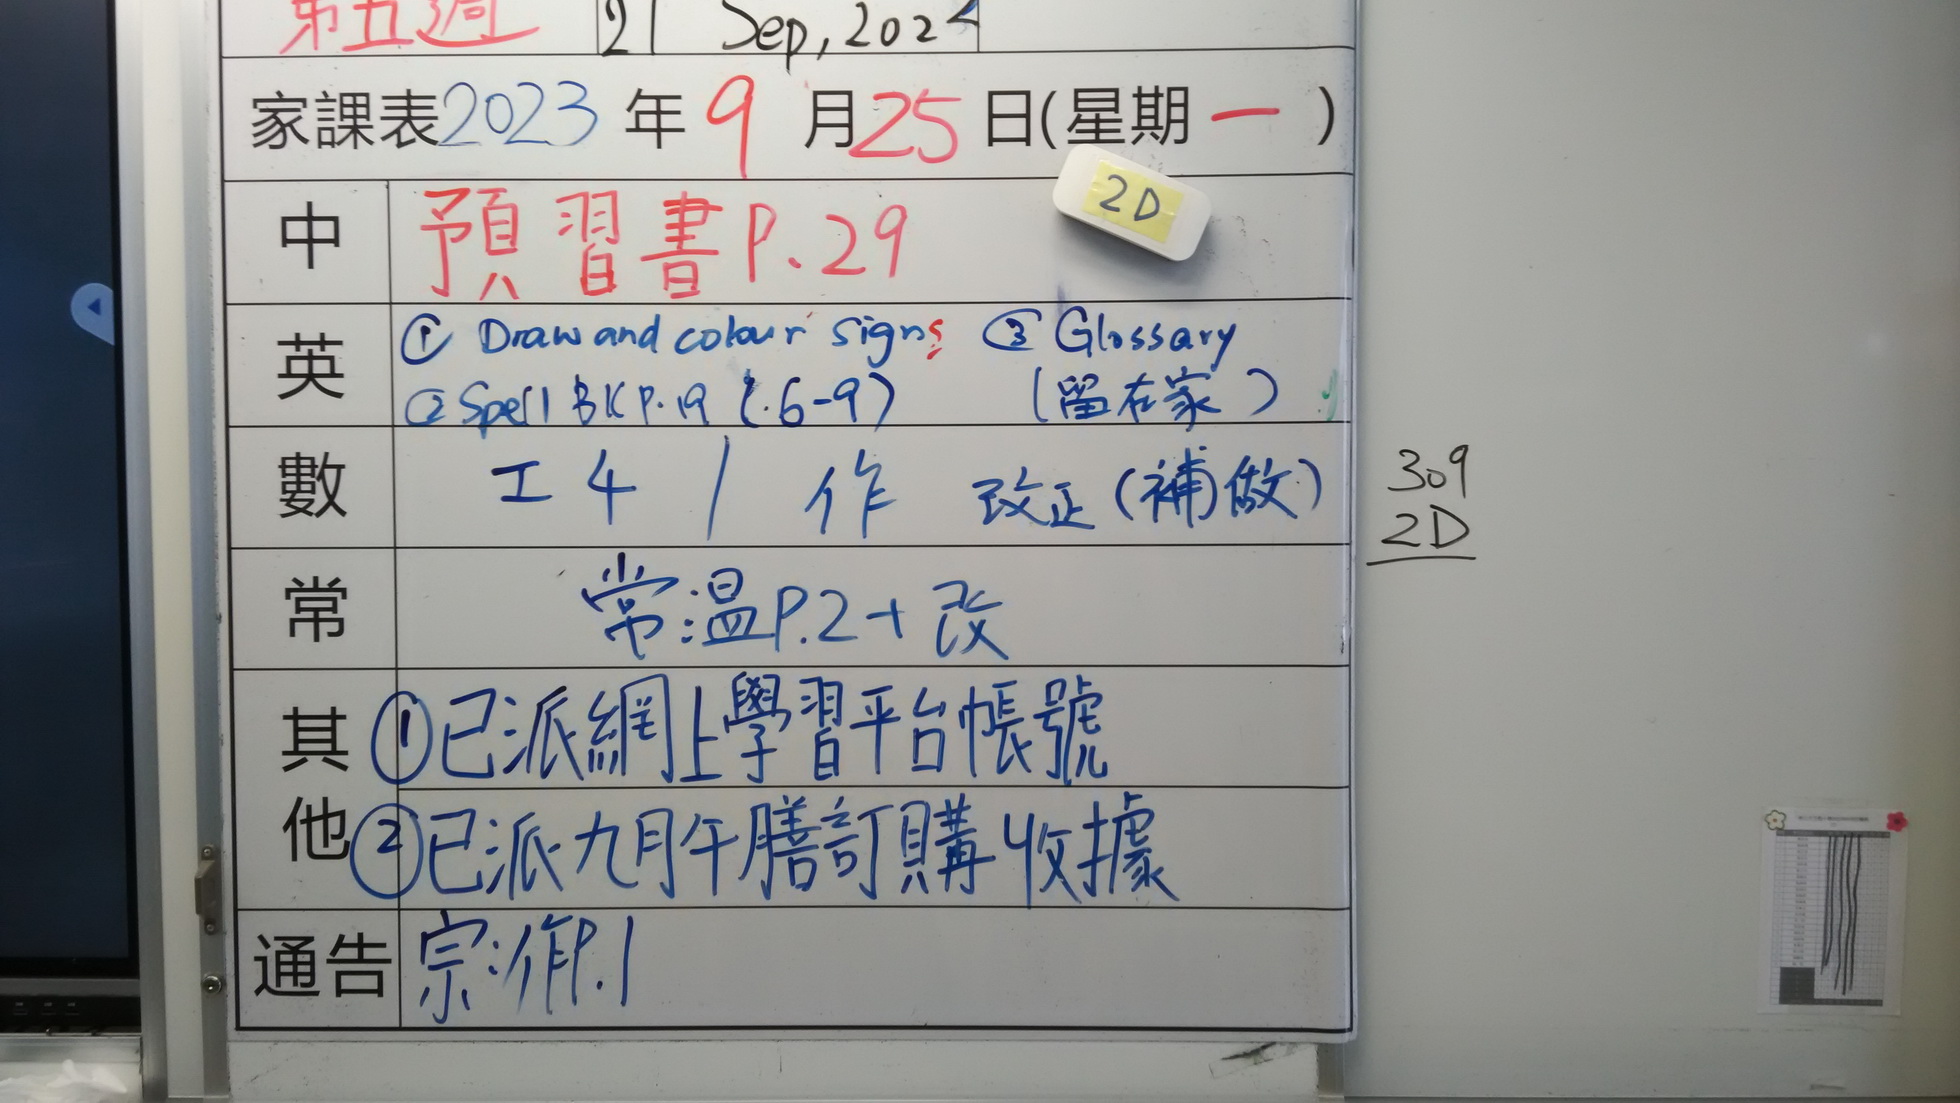 第五週 21 Sep, 202
家課表2023年9月25日(星期一)
2D
中 預習書P.29
英 ① Draw and colour signs ③ Glossary
② Spell BK P.19 (.6-9) (留在家)
數 工4 / 作 改正(補做)
309
2D
常 常:温P.2+改
其他 ①已派網上學習平台帳號
②已派九月午膳訂購收據
通告 宗:作P.1